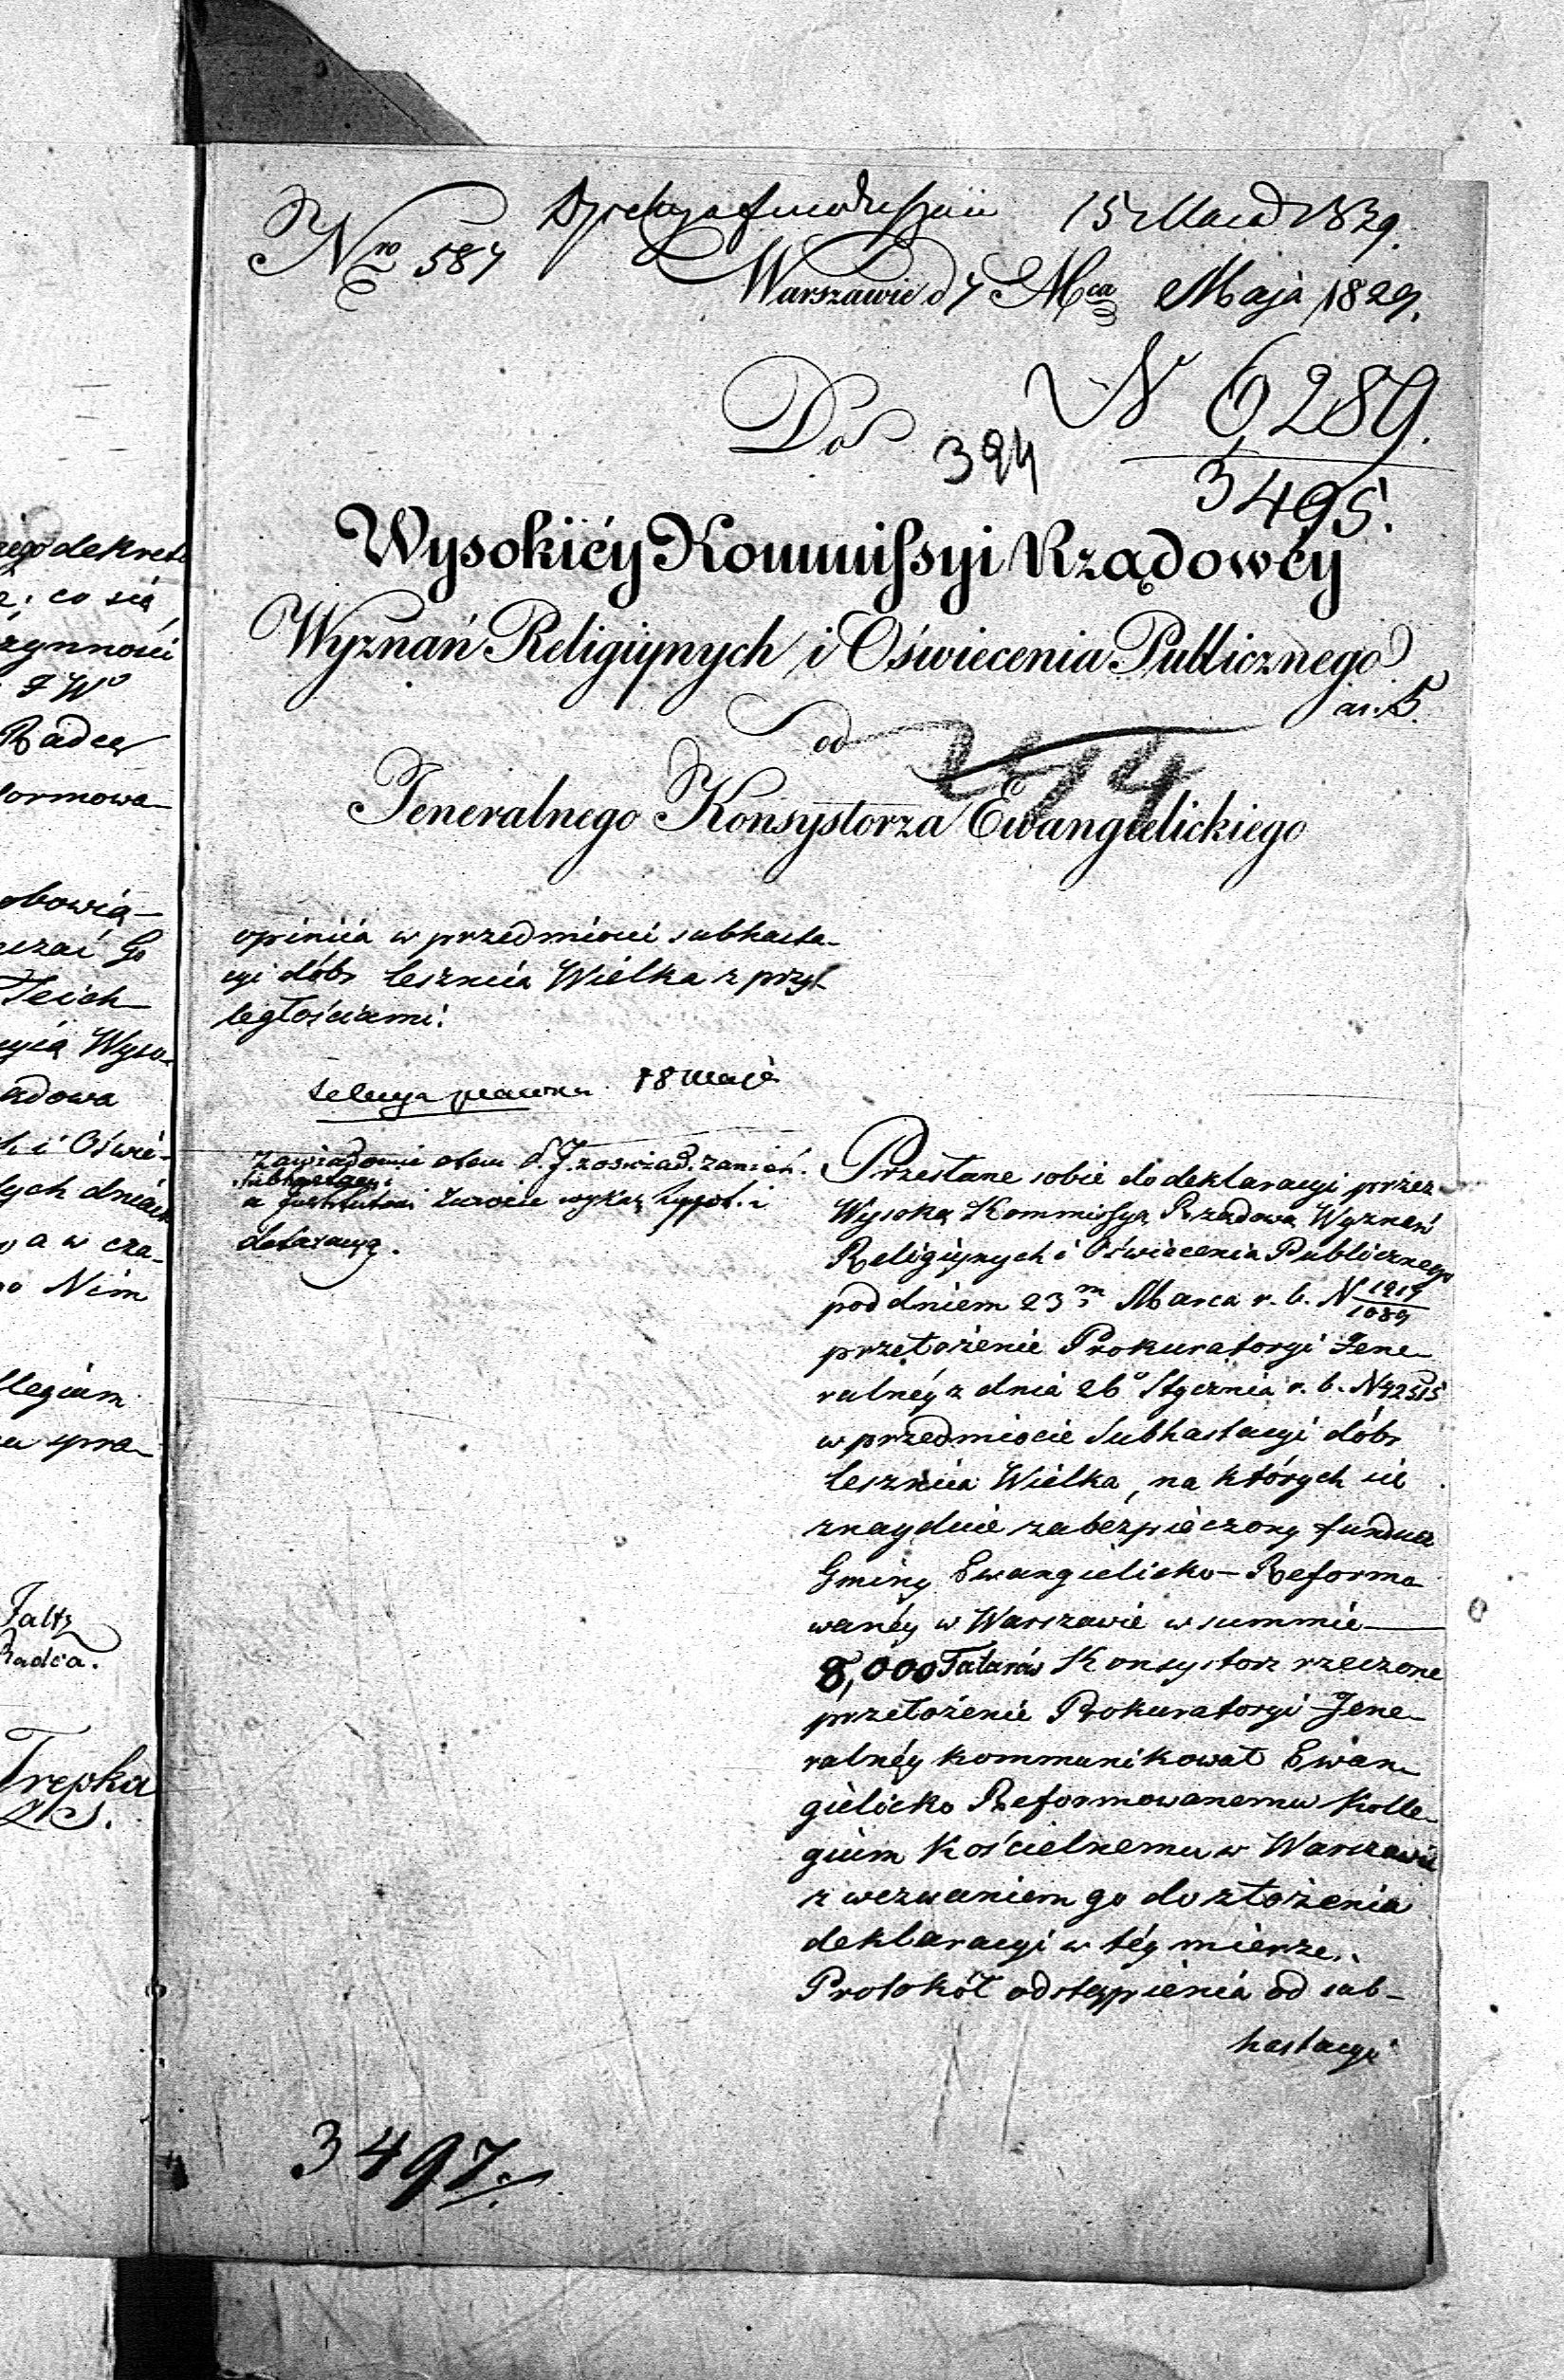 rego dekretu
co się
czynności
JW
Radcę
formowa-
obowią-
uszać Go
Teich-
Wyso-
adowa
i Oświe-
tych dniach
a w cza-
Nim
llegium
Faltz
Radca.
Trepka
Nro 587
15 Maia 1829.
Warszawie d 7 Mca Maja 1829.
Do
324
N 6289.
3495.
Wysokiéy Kommissyi Rządowéy
Wyznań Religiynych i Oświecenia Publicznego
od
Jeneralnego Konsystorza Ewangielickiego
opiniia w przedmiocie subhasta-
cyi dóbr Lesznica Wielka z przy-
ległościami.
18 Maja
Subhastacyi
Przesłane sobie do deklaracyi przez
Wysoką Kommissyą Rządową Wyznań
Religiynych i Oświecenia Publicznego
pod dniem 23m Marca r. b. N 1217/1089
przełożenie Prokuratoryi Jene-
ralnéy z dnia 26o Stycznia r. b. N 42515
w przedmiocie Subhastacyi dóbr
Lesznica Wielka, na których się
znayduie zabezpieczony fundusz
Gminy Ewangielicko-Reformo
wanéy w Warszawie w summie
8,000 Talarów Konsystorz rzeczone
przełożenie Prokuratoryi Jene-
ralnéy kommunikował Ewan-
gielicko Reformowanemu Kolle-
gium Kościelnemu w Warszawie
z wezwaniem go do złożenia
deklaracyi w téy mierze.
Protokół odstąpienia od sub-
hastacyi
3497.